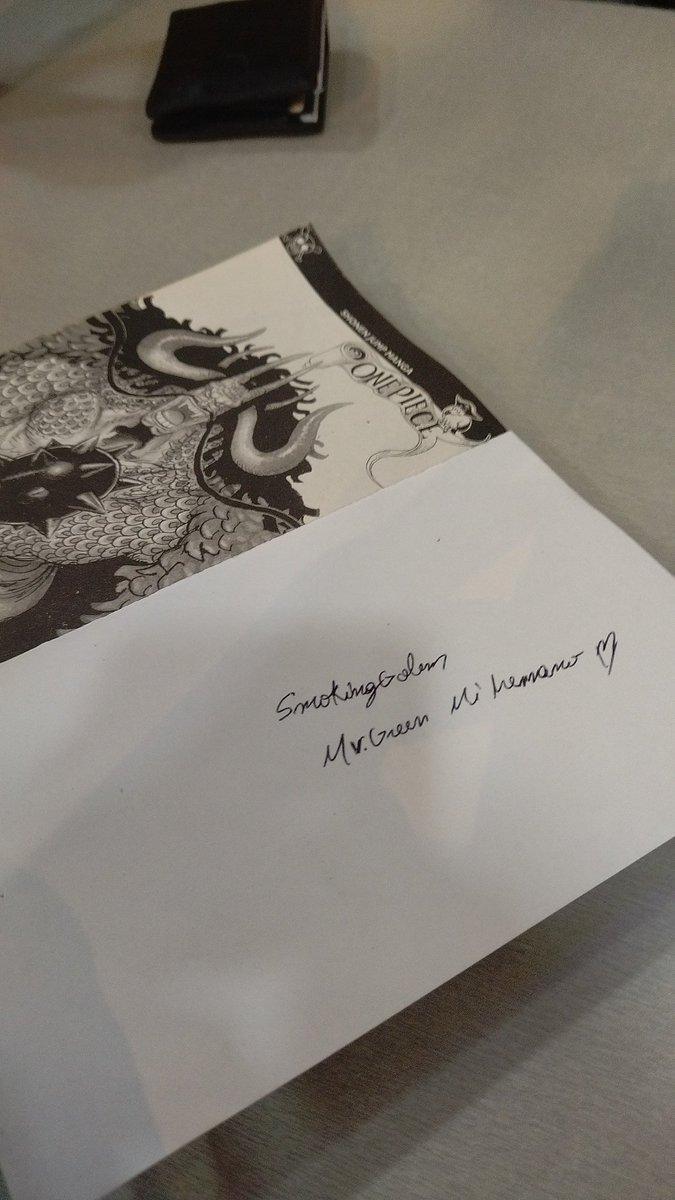 SHONEN JUMP MANGA
ONE PIECE
SmokingGolem
Mr.Green Mi hermano ♡